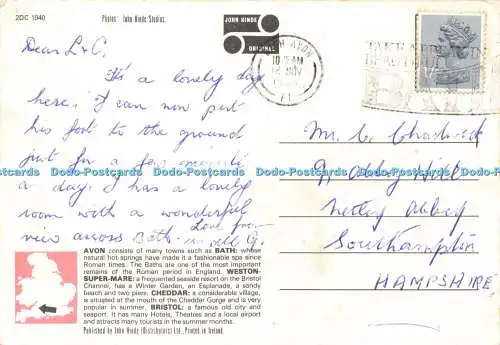 2DC 1040
Photos: John Hinde Studios.
JOHN HINDE
ORIGINAL
AVON
10 AM
NOV
Dear L & C.
It's a lovely day
here, I can now put
his foot to the ground
just for a few
a day. I has a lovely
room with a wonderful
view across Bath
Love from
Mr. C. Chadwick
9, Abbey Hill
Netley Abbey
Southampton
HAMPSHIRE
AVON consists of many towns such as BATH: whose
natural hot-springs have made it a fashionable spa since
Roman times. The Baths are one of the most important
remains of the Roman period in England. WESTON-
SUPER-MARE: a frequented seaside resort on the Bristol
Channel, has a Winter Garden, an Esplanade, a sandy
beach and two piers. CHEDDAR: a considerable village,
is situated at the mouth of the Cheddar Gorge and is very
popular in summer. BRISTOL: a famous old city and
seaport. It has many Hotels, Theatres and a local airport
and attracts many tourists in the summer months.
Published by John Hinde (Distributors) Ltd., Printed in Ireland.
Dodo-Postcards Dodo-Postcards Dodo-Postcards Dodo-Postcards Dodo-Postcards